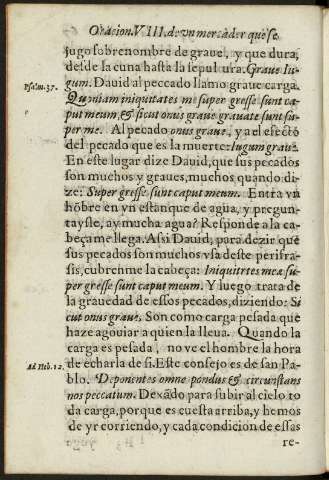 Oracion.VIII.de vn mercader que se
jugo sobrenombre de graue, y que dura,
desde la cuna hasta la sepultura. Graue Iu-
gum. Dauid al peccado llamo graue carga.
Psalm.37.
Quoniam iniquitates meę super gressę sunt ca-
put meum, & sicut onus graue grauatę sunt su-
per me. Al pecado onus graue, y a el efecto
del pecado que es la muerte: Iugum graue.
En este lugar dize Dauid, que sus pecados
son muchos y graues, muchos quando di-
ze: Super gressę sunt caput meum. Entra vn
hōbre en vn estanque de agua, y pregun-
taysle, ay mucha agua? Responde a la ca-
beça me llega. Assi Dauid, para dezir que
sus pecados son muchos vsa deste perifra-
sis, cubrenme la cabeça: Iniquitates meæ su-
per gressę sunt caput meum. Y luego trata de
la grauedad de essos pecados, diziendo: Si
cut onus graue. Son como carga pesada que
haze agouiar a quien la lleua. Quando la
carga es pesada, no ve el hombre la hora
de echarla de si. Este consejo es de san Pa-
Ad Heb.12.
blo. Deponentes omne pondus & circunstans
nos peccatum. Dexādo para subir al cielo to
da carga, porque es cuesta arriba, y hemos
de yr corriendo, y cada condicion de essas
re-